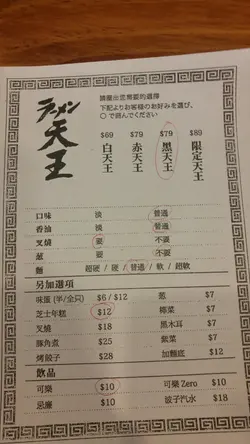 ラーメン
天王
請圈出您需要的選擇
下記よりお客様のお好みを選び、
○で囲んでください
$69 $79 $79 $89
白天王 赤天王 黑天王 限定天王
口味 淡 普通
香油 淡 普通
叉燒 要 不要
蔥 要 不要
麵 超硬 / 硬 / 普通 / 軟 / 超軟
另加選項
味蛋 (半/全只) $6 / $12 蔥 $7
芝士年糕 $12 椰菜 $7
叉燒 $18 黑木耳 $7
豚角煮 $25 紫菜 $7
烤餃子 $28 加麵底 $12
飲品
可樂 $10 可樂 Zero $10
忌廉 $10 波子汽水 $18